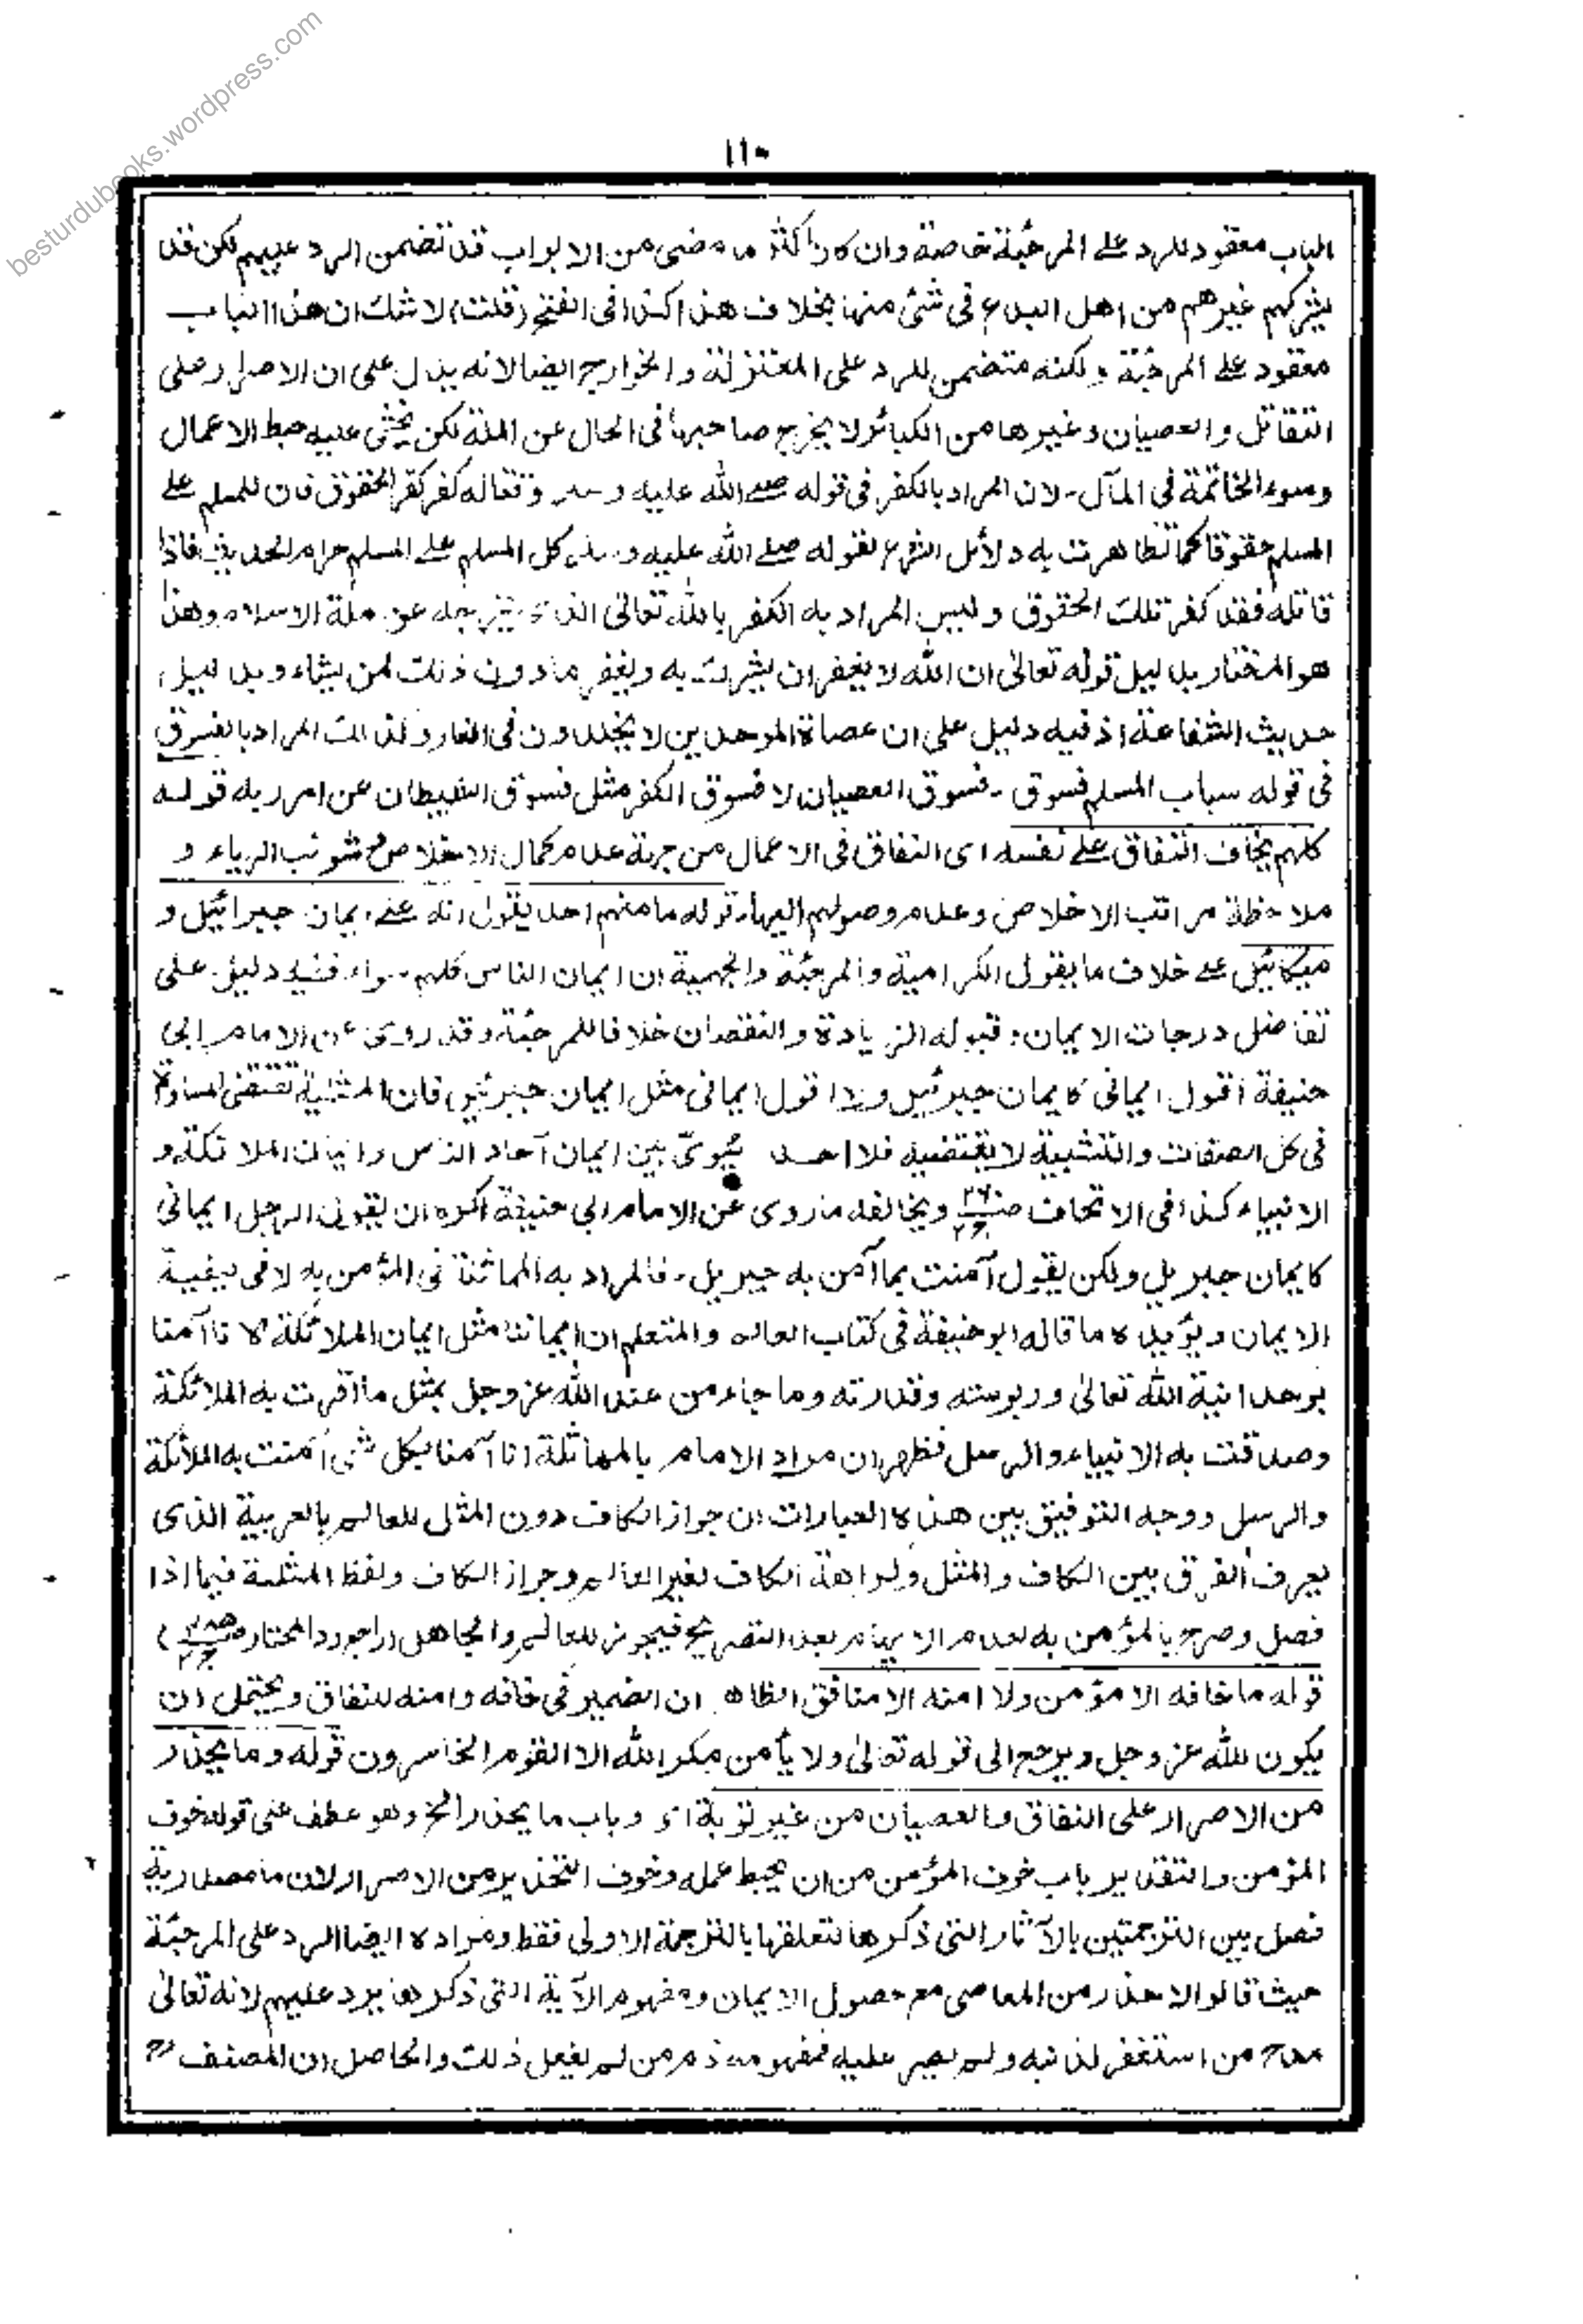 besturdubooks.wordpress.com
١١٠
الباب معقود للرد على المرجئة خاصة وان كان اكثر ما مضى من الابواب قد تضمن الرد عليهم لكن قد
يشركهم غيرهم من اهل البدع فى شئ منها بخلاف هذا كذا فى الفتح (قلت) لا شك ان هذا الباب
معقود على المرجئة ولكنه متضمن للرد على المعتزلة والخوارج ايضا لانه يدل على ان الاصرار على
التقاتل والعصيان وغيرها من الكبائر لا يخرج صاحبها فى الحال عن الملة لكن يخشى عليه حبط الاعمال
وسوء الخاتمة فى المآل۔ لان المراد بالكفر فى قوله صلے الله عليه وسلم وقتاله كفر كفر الحقوق فان للمسلم على
المسلم حقوقا كما تظاهرت به دلائل الشرع لقوله صلے الله عليه وسلم كل المسلم على المسلم حرام الحديث فاذا
قاتله فقد كفر تلك الحقوق وليس المراد به الكفر بالله تعالى الذى يخرجه عن ملة الاسلام وهذا
هو المختار بدليل قوله تعالى ان الله لا يغفر ان يشرك به ويغفر ما دون ذلك لمن يشاء وبدليل
حديث الشفاعة اذ فيه دليل على ان عصاة الموحدين لا يخلدون فى النار وكذلك المراد بالفسوق
فى قوله سباب المسلم فسوق ۔ فسوق العصيان لا فسوق الكفر مثل فسوق الشيطان عن امر ربه قوله
كلهم يخاف النفاق على نفسه اى النفاق فى الاعمال من جهة عدم كمال الاخلاص وشوئب الرياء و
ملاحظة مراتب الاخلاص وعدم وصولهم اليها۔ قوله ما منهم احد يقول انه على ايمان جبرائيل و
ميكائيل على خلاف ما يقول الكرامية والمرجئة والجهمية ان ايمان الناس كلهم سواء ففيه دليل على
تفاضل درجات الايمان وقبوله الزيادة والنقصان خلافا للمرجئة وقد روى عن الامام ابى
حنيفة اقول ايمانى كايمان جبرئيل ولا اقول ايمانى مثل ايمان جبرئيل فان المثلية تقتضى المساواة
فى كل الصفات والتشبيه لا يقتضيه فلا احد يسوى بين ايمان آحاد الناس وايمان الملائكة و
الانبياء كذا فى الاتحاف ويخالفه ما روى عن الامام ابى حنيفة اكره ان يقول الرجل ايمانى
كايمان جبريل ولكن يقول آمنت بما آمن به جبريل۔ فالمراد به المماثلة فى المؤمن به لا فى كيفية
الايمان ويؤيده ما قاله ابو حنيفة فى كتاب العالم والمتعلم ان ايماننا مثل ايمان الملائكة لانا آمنا
بوحدانية الله تعالى وربوبيته وقدرته وما جاء من عند الله عز وجل بمثل ما اقرت به الملائكة
وصدقت به الانبياء والرسل فظهر ان مراد الامام بالمماثلة انا آمنا بكل شئ آمنت به الملائكة
والرسل ووجه التوفيق بين هذه العبارات ان جواز الكاف دون المثل للعالم بالعربية الذى
يعرف الفرق بين الكاف والمثل وكراهة الكاف لغير العالم وجواز الكاف ولفظ المثلية فيما اذا
فصل وصرح بالمؤمن به لعدم الايهام بعد التصريح فيجوز للعالم والجاهل (راجع رد المحتار )
قوله ما خافه الا مؤمن ولا امنه الا منافق الظاهر ان الضمير فى خافه وامنه للنفاق ويحتمل ان
يكون لله عز وجل ويرجع الى قوله تعالى ولا يأمن مكر الله الا القوم الخاسرون قوله وما يحذر
من الاصرار على النفاق والعصيان من غير توبة اى وباب ما يحذر الخ وهو عطف على قوله خوف
المؤمن والتقدير باب خوف المؤمن من ان يحبط عمله وخوف التحذير من الاصرار لان ما مصدرية
فصل بين الترجمتين بالآثار التى ذكرها لتعلقها بالترجمة الاولى فقط ومراده ايضا الرد على المرجئة
حيث قالوا لا حذر من المعاصى مع حصول الايمان ومفهوم الآية التى ذكرها يرد عليهم لانه تعالى
مدح من استغفر لذنبه ولم يصر عليه فمفهومه ذم من لم يفعل ذلك والحاصل ان المصنف رح